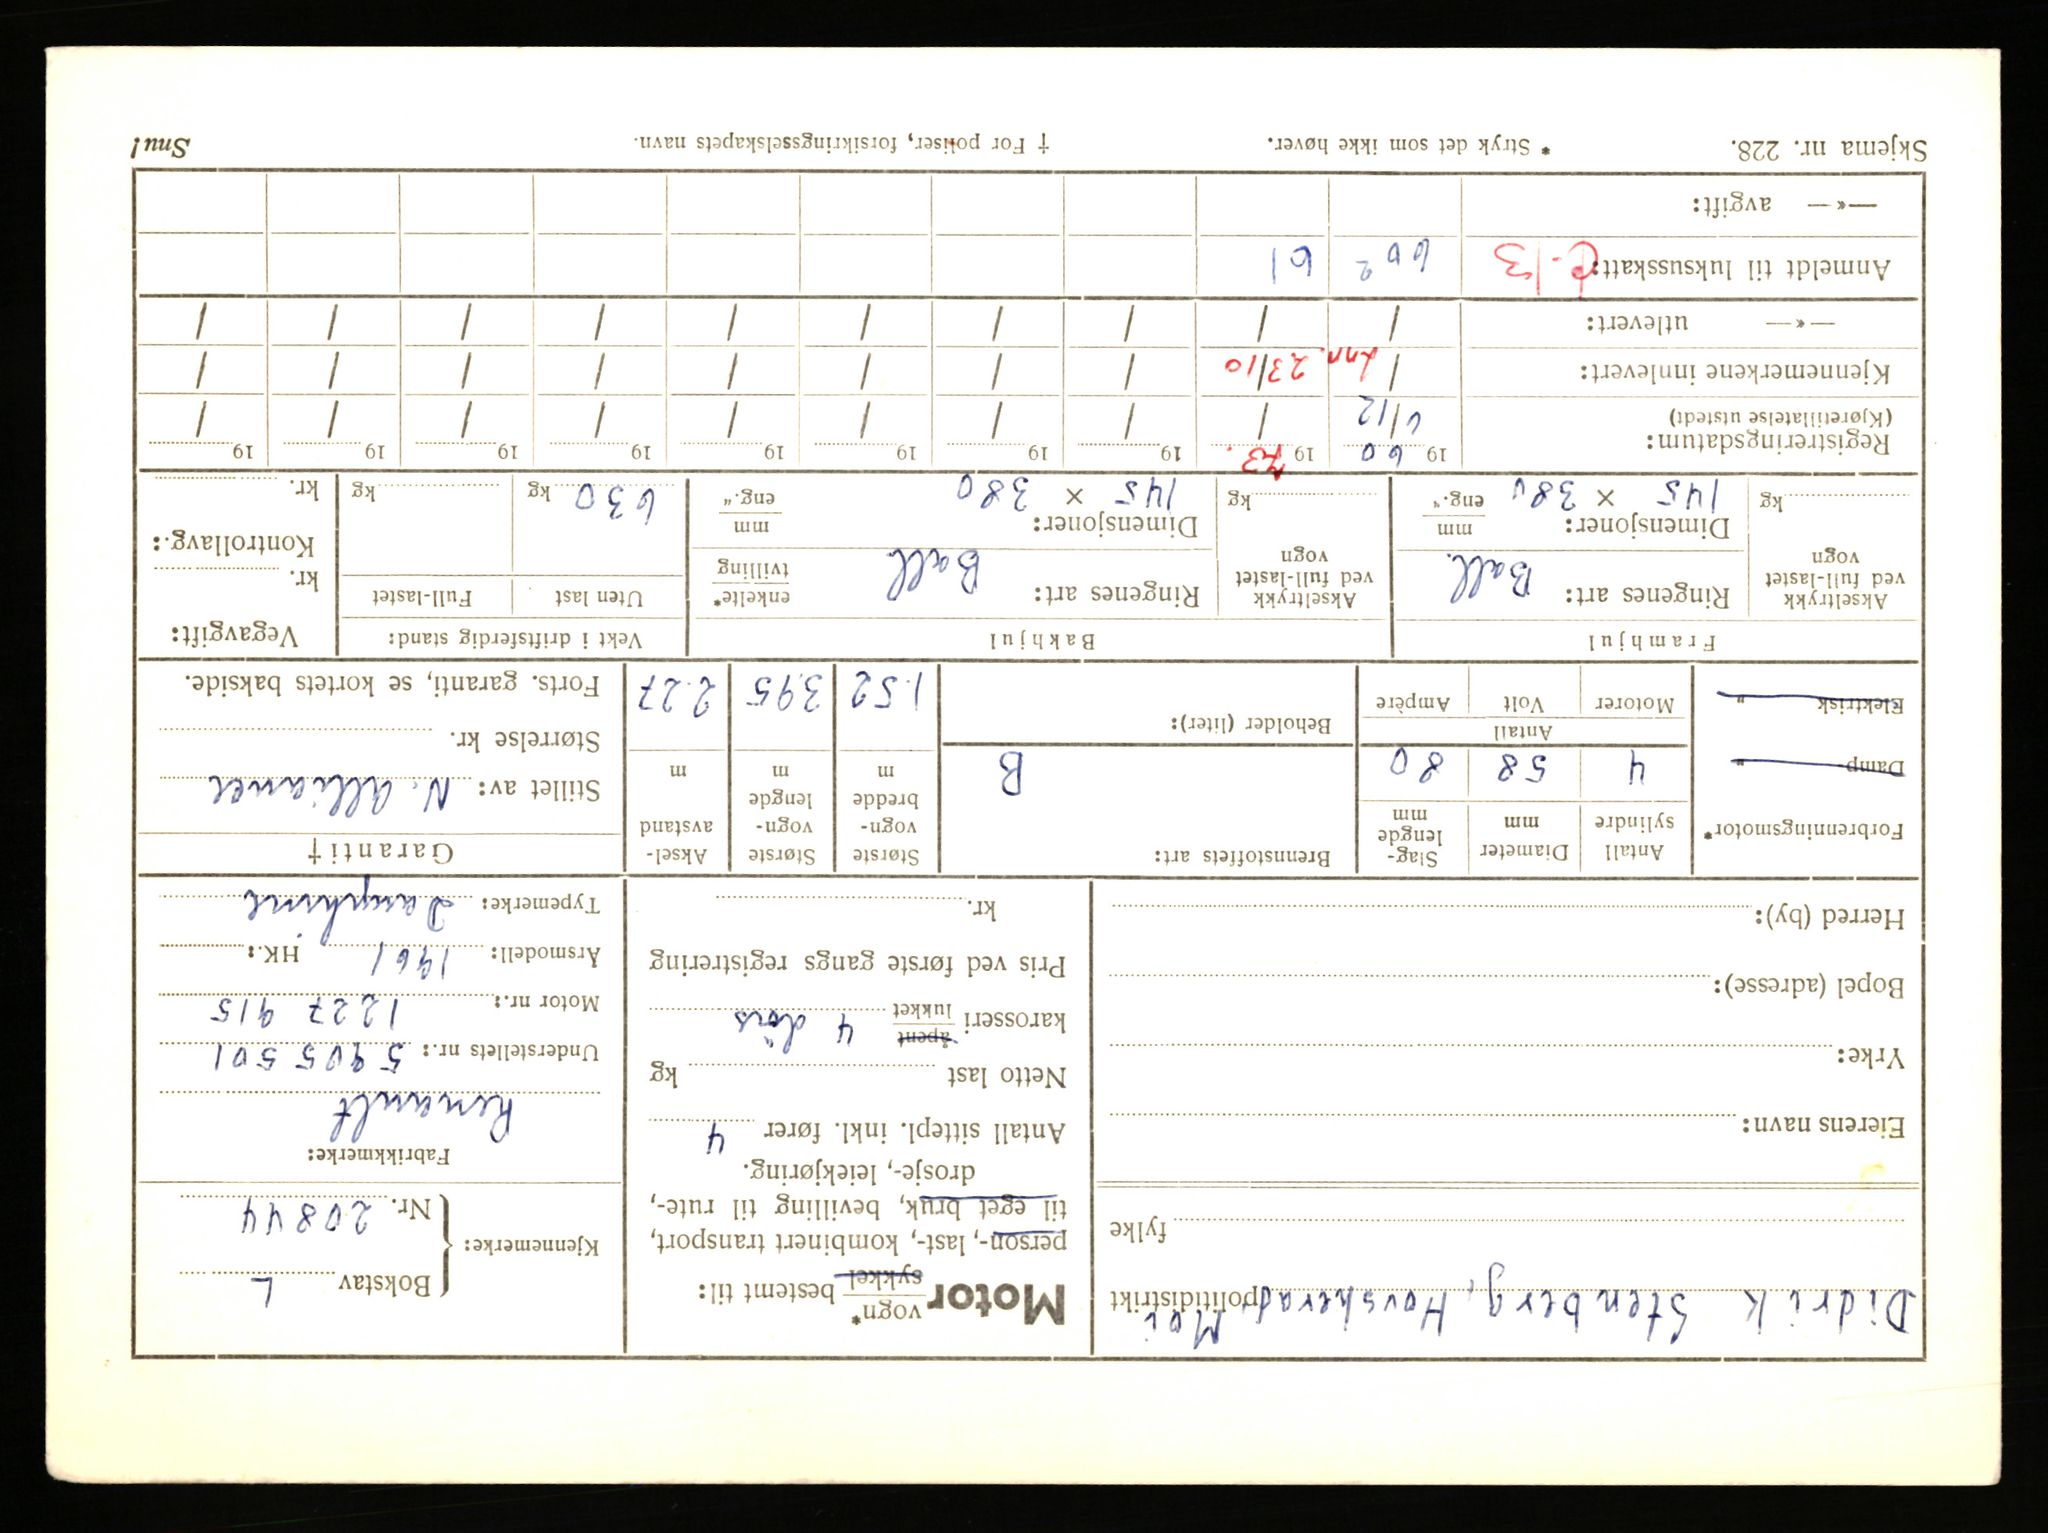 Didrik Stenberg, Hovsherad, Moi
politidistrikt
fylke
Eierens navn:
Yrke:
Bopel (adresse):
Herred (by):
Motor vogn* sykkel bestemt til:
person-, last-, kombinert transport,
til eget bruk, bevilling til rute-,
drosje-, leiekjøring.
Antall sittepl. inkl. fører 4
Netto last kg
karosseri åpent lukket 4 dørs
Pris ved første gangs registrering
kr.
Kjennemerke: { Bokstav L
Nr. 20844
Fabrikkmerke:
Renault
Understellets nr.: 5905501
Motor nr.: 1227915
Årsmodell: 1961 HK.:
Typemerke: Dauphine
Forbrenningsmotor*
Damp "
Elektrisk "
Antall sylindre
Diameter mm
Slag-lengde mm
4 58 80
Antall
Motorer Volt Ampère
Brennstoffets art:
B
Beholder (liter):
Største vogn-bredde m
1.52
Største vogn-lengde m
3.95
Aksel-avstand m
2.27
Garanti †
Stillet av: N. Alliance
Størrelse kr.
Forts. garanti, se kortets bakside.
Framhjul
Akseltrykk ved full-lastet vogn
kg
Ringenes art: Ball.
Dimensjoner: mm eng."
145 × 380
Bakhjul
Akseltrykk ved full-lastet vogn
kg
Ringenes art: Ball enkelte* tvilling
Dimensjoner: mm eng."
145 × 380
Vekt i driftsferdig stand:
Uten last Full-lastet
630 kg kg
Vegavgift:
kr.
Kontrollavg.:
kr.
Registreringsdatum: 1960 1973. 19 19 19 19 19 19 19 19 19
(Kjøretillatelse utstedt) 6/12 / / / / / / / / / /
Kjennemerkene innlevert: / 23/10 / / / / / / / / /
—«— utlevert: / / / / / / / / / / /
Anmeldt til luksusskatt: 60 2 61
—«— avgift:
Skjema nr. 228. * Stryk det som ikke høver. † For poliser, forsikringsselskapets navn. Snu!